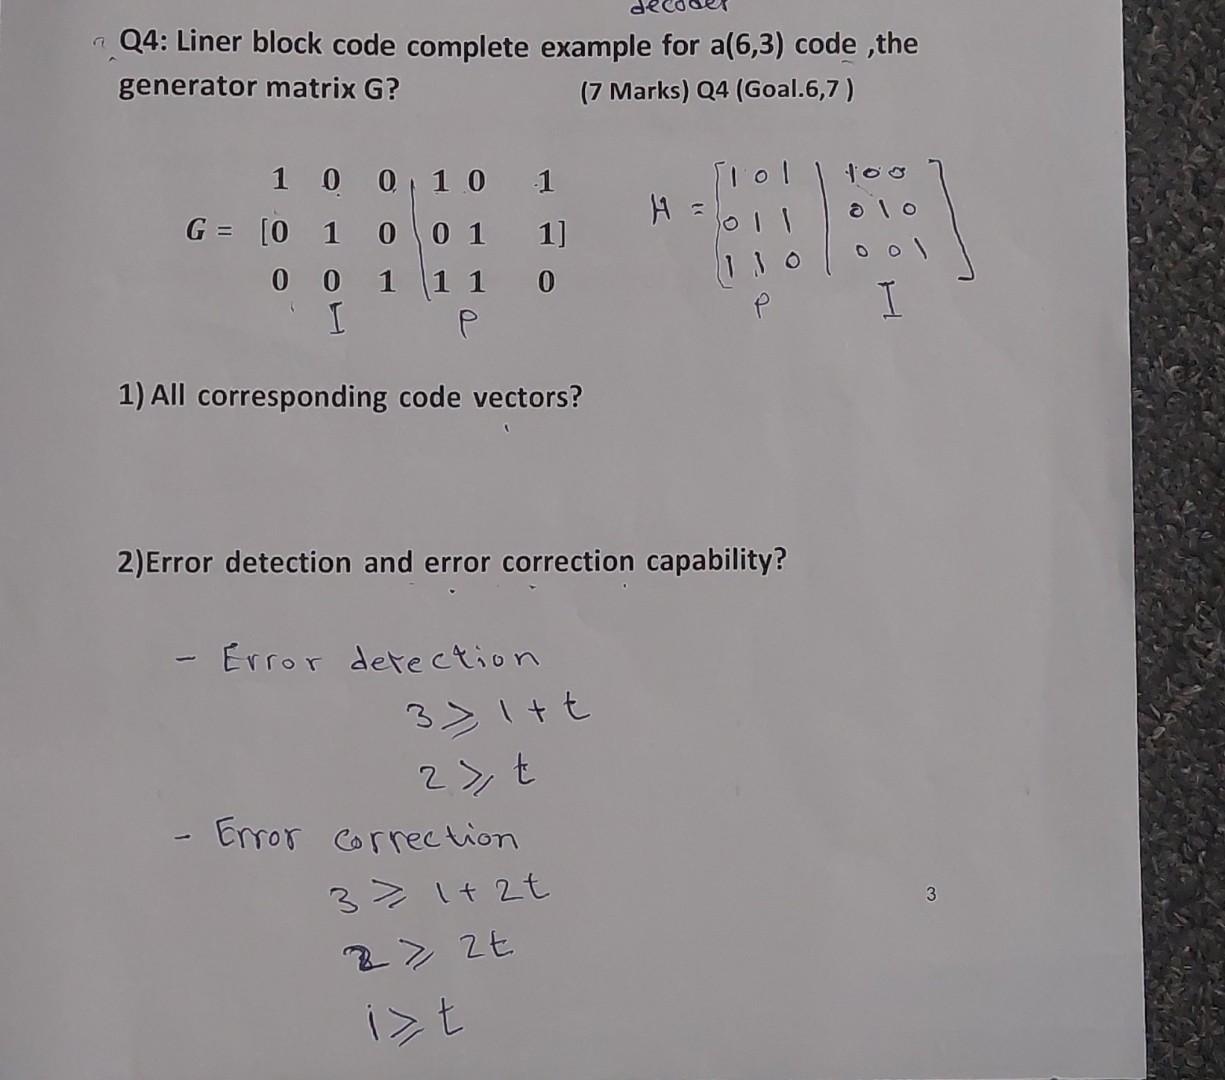 decoder
Q4: Liner block code complete example for a(6,3) code ,the
generator matrix G?
(7 Marks) Q4 (Goal.6,7 )
1 0 0 1 0 1
G = [0 1 0 0 1 1]
0 0 1 1 1 0
I P
H = [1 0 1 | 1 0 0
0 1 1 | 0 1 0
1 1 0 | 0 0 1]
P I
1) All corresponding code vectors?
2)Error detection and error correction capability?
- Error detection
3 ⩾ 1 + t
2 ⩾ t
- Error correction
3 ⩾ 1 + 2t
2 ⩾ 2t
1 ⩾ t
3